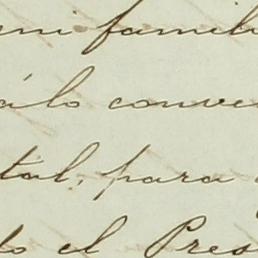 mi famili
álo conve
tal, para
to el Pres